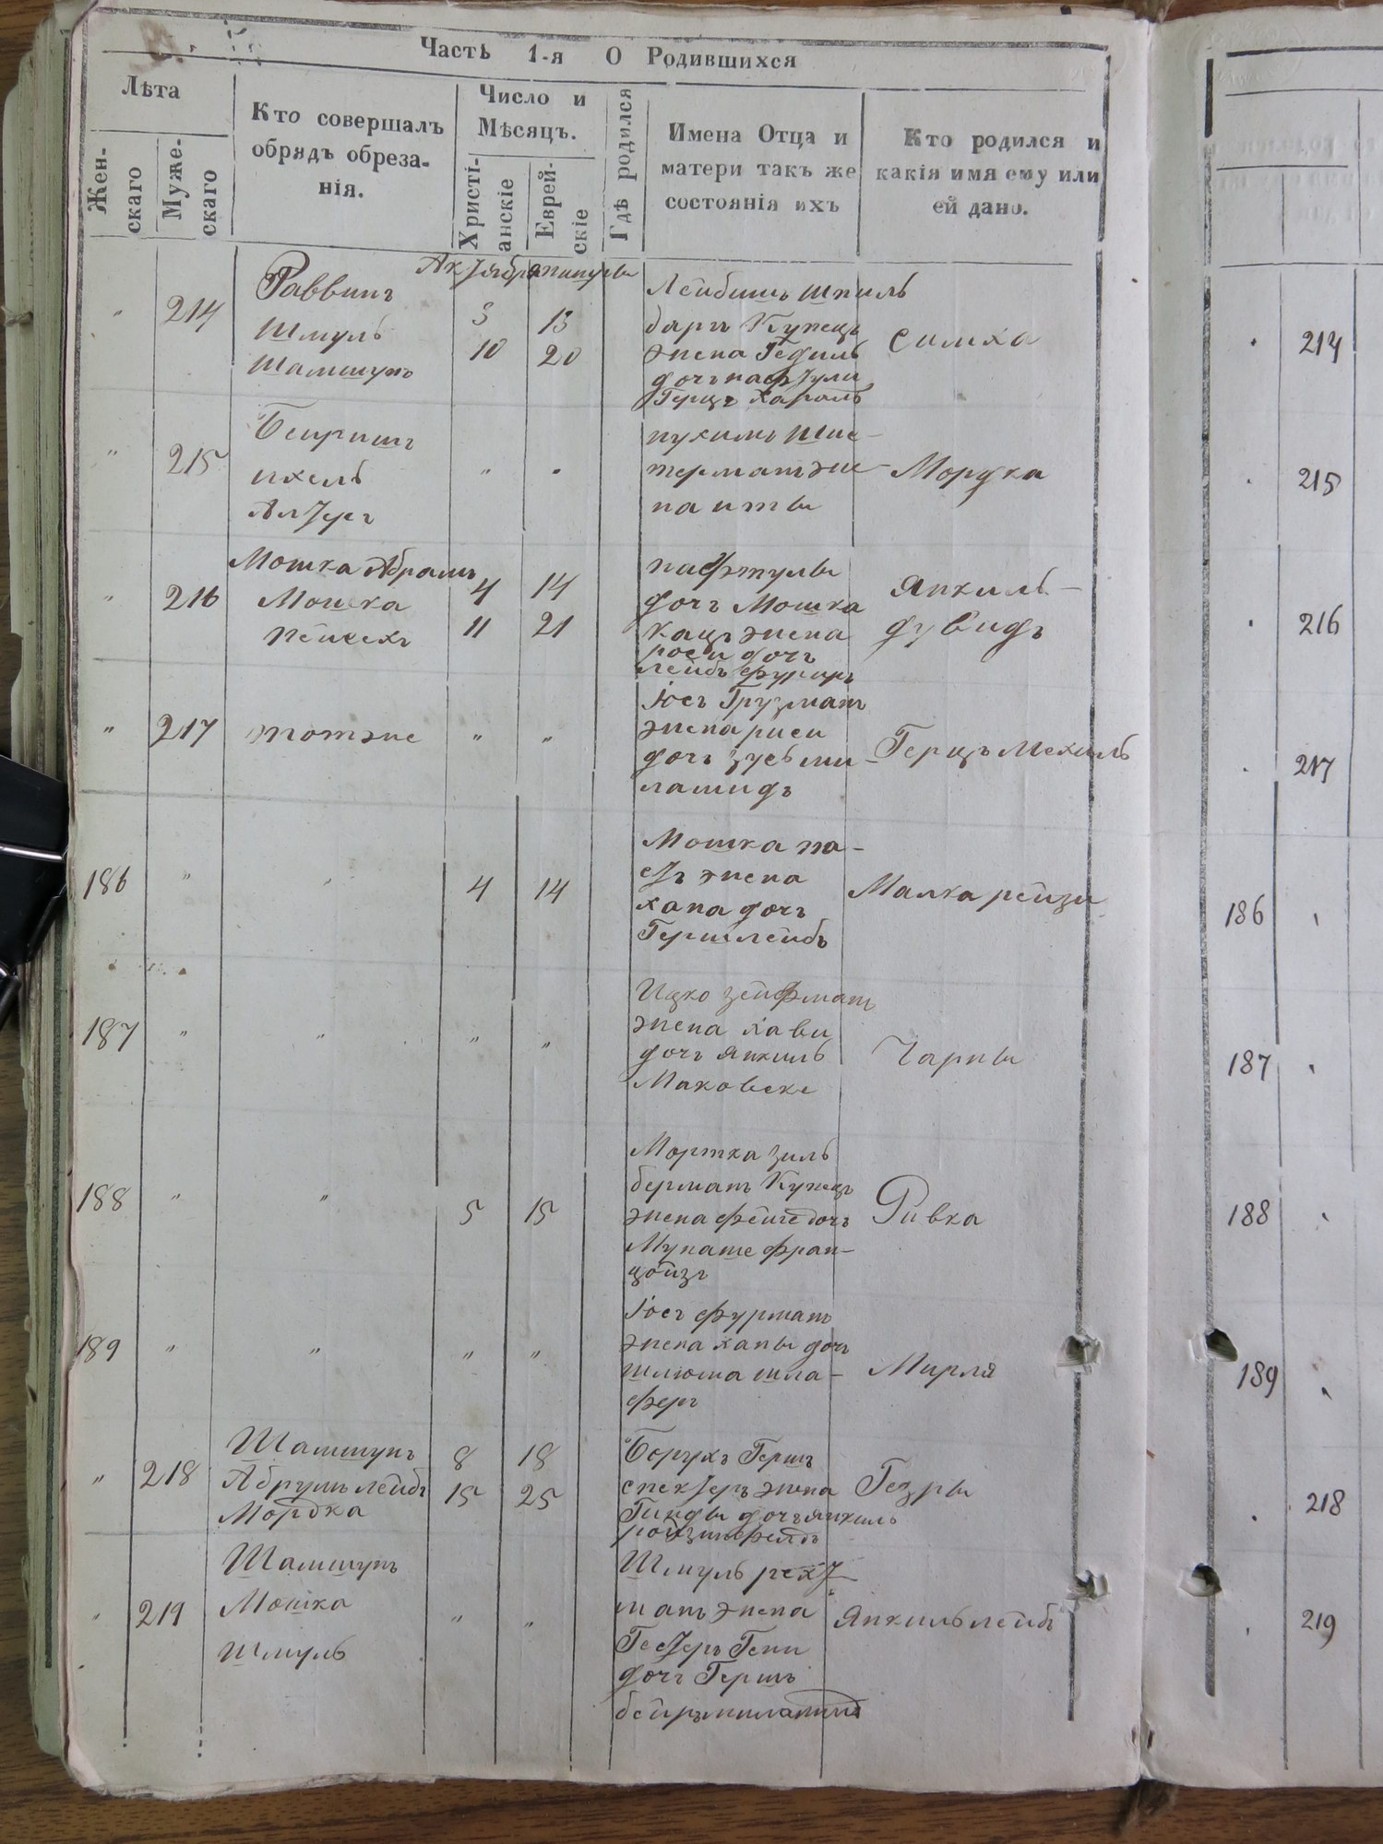 Часть 1-я О Родившихся
Лѣта
Жен-
скаго
Муже-
скаго
Кто совершалъ
обрядъ обреза-
нія.
Число и
Мѣсяцъ.
Христі-
анскіе
Еврей-
скіе
Гдѣ родился
Имена Отца и
матери такъ же
состоянія ихъ
Кто родился и
какія имя ему или
ей дано.
214
Раввинъ
Шмуль
Шамшунъ
3 13
10 20
Лейбишъ шпиль
барг Купецъ
жена Гедиль
дочь нафтули
Герцъ
Симха
214
215
Беиришъ
ихель
Алтерг
" "
жена иты
Мордка
215
216
Мошка Абрамъ
Мошка
Пейсехъ
4 14
11 21
нафтулы
дочг Мошка
Кацъ жена
роси дочг
лейбъ
янкиль
дувидъ
216
217
тотже
" "
Іосъ Грузманъ
жена риси
дочг зусь ми
ламидъ
Герцъ Мехиль
217
186 " "
4 14
Мошка па-
жена
хана дочг
Гершлейбъ
Малка рейзи
186
187 " "
" "
Ицко зейфманъ
жена хави
дочг янкиль
Маковске
Чарны
187
188 " "
5 15
Мортка зиль
берманъ Купецъ
жена фейге дочъ
Мунаше фран-
цойзг
Ривка
188
189 " "
" "
Іосъ фурманъ
жена ханы дочг
шлюма шла-
ферг
Мирля
189
" 218
Шамшунъ
Абрумъ лейбъ
Мордка
8 18
15 25
Борухъ Гершъ
спекторъ жена
Гинды дочг янкиль
ройзинфелдъ
218
219
Шамшунъ
Мошка
Шмуль
" "
Шмуль рехт-
манъ жена
Гестеръ Гени
дочг Гершъ
янкиль лейбъ
219